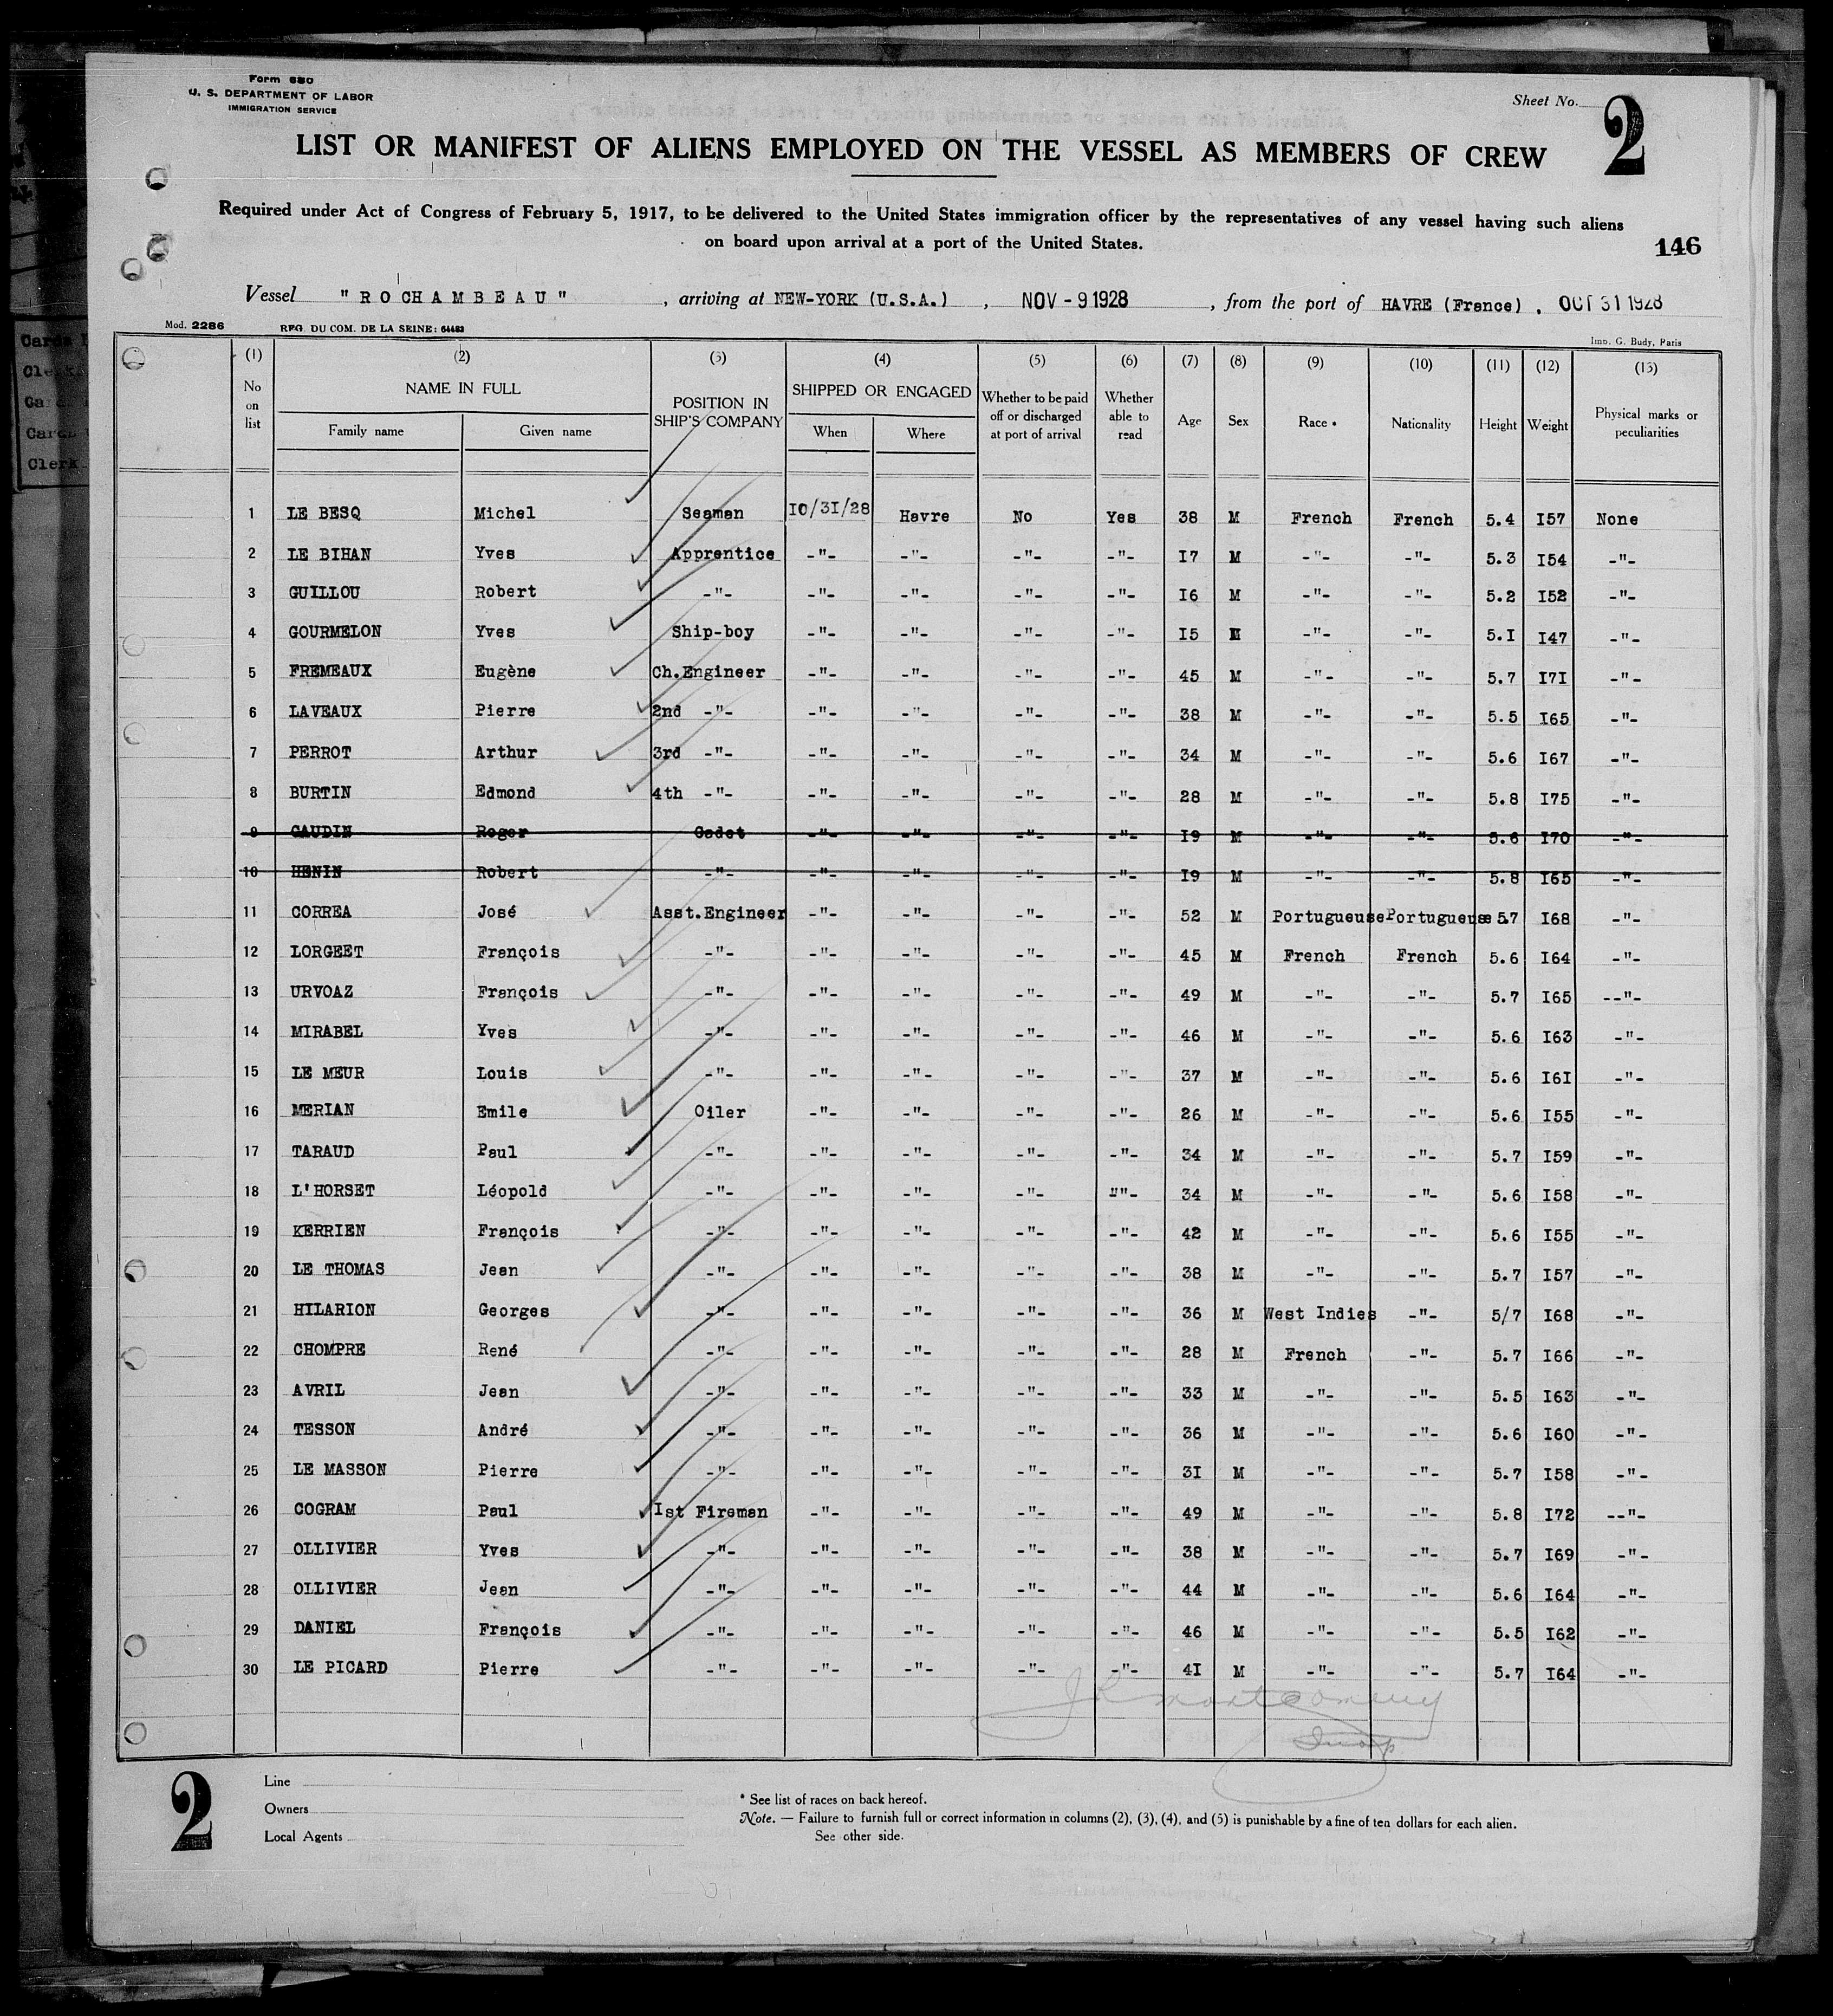 Form 680
U. S. DEPARTMENT OF LABOR
IMMIGRATION SERVICE
Sheet No. 2
LIST OR MANIFEST OF ALIENS EMPLOYED ON THE VESSEL AS MEMBERS OF CREW
Required under Act of Congress of February 5, 1917, to be delivered to the United States immigration officer by the representatives of any vessel having such aliens
on board upon arrival at a port of the United States.
146
Vessel "ROCHAMBEAU" , arriving at NEW-YORK (U.S.A.) , NOV - 9 1928 , from the port of HAVRE (France) , OCT 31 1928
Mod. 2286 REG. DU COM. DE LA SEINE: 64483 Imp. G. Budy, Paris
(1) (2) (3) (4) (5) (6) (7) (8) (9) (10) (11) (12) (13)
No on list NAME IN FULL POSITION IN SHIP'S COMPANY SHIPPED OR ENGAGED Whether to be paid off or discharged at port of arrival Whether able to read Age Sex Race * Nationality Height Weight Physical marks or peculiarities
Family name Given name When Where
1 LE BESQ Michel Seaman IO/3I/28 Havre No Yes 38 M French French 5.4 I57 None
2 LE BIHAN Yves Apprentice -"- -"- -"- -"- I7 M -"- -"- 5.3 I54 -"-
3 GUILLOU Robert -"- -"- -"- -"- -"- I6 M -"- -"- 5.2 I52 -"-
4 GOURMELON Yves Ship-boy -"- -"- -"- -"- I5 M -"- -"- 5.I I47 -"-
5 FREMEAUX Eugène Ch.Engineer -"- -"- -"- -"- 45 M -"- -"- 5.7 I7I -"-
6 LAVEAUX Pierre 2nd -"- -"- -"- -"- -"- 38 M -"- -"- 5.5 I65 -"-
7 PERROT Arthur 3rd -"- -"- -"- -"- -"- 34 M -"- -"- 5.6 I67 -"-
8 BURTIN Edmond 4th -"- -"- -"- -"- -"- 28 M -"- -"- 5.8 I75 -"-
9 CAUDIN Roger Cadet -"- -"- -"- -"- I9 M -"- -"- 5.6 I70 -"-
10 HENIN Robert -"- -"- -"- -"- -"- I9 M -"- -"- 5.8 I65 -"-
11 CORREA José Asst.Engineer -"- -"- -"- -"- 52 M Portugueuse Portugueuse 5.7 I68 -"-
12 LORGEET François -"- -"- -"- -"- -"- 45 M French French 5.6 I64 -"-
13 URVOAZ François -"- -"- -"- -"- -"- 49 M -"- -"- 5.7 I65 --"-
14 MIRABEL Yves -"- -"- -"- -"- -"- 46 M -"- -"- 5.6 I63 -"-
15 LE MEUR Louis -"- -"- -"- -"- -"- 37 M -"- -"- 5.6 I6I -"-
16 MERIAN Emile Oiler -"- -"- -"- -"- 26 M -"- -"- 5.6 I55 -"-
17 TARAUD Paul -"- -"- -"- -"- -"- 34 M -"- -"- 5.7 I59 -"-
18 L'HORSET Léopold -"- -"- -"- -"- ""- 34 M -"- -"- 5.6 I58 -"-
19 KERRIEN François -"- -"- -"- -"- -"- 42 M -"- -"- 5.6 I55 -"-
20 LE THOMAS Jean -"- -"- -"- -"- -"- 38 M -"- -"- 5.7 I57 -"-
21 HILARION Georges -"- -"- -"- -"- -"- 36 M West Indies -"- 5/7 I68 -"-
22 CHOMPRE René -"- -"- -"- -"- -"- 28 M French -"- 5.7 I66 -"-
23 AVRIL Jean -"- -"- -"- -"- -"- 33 M -"- -"- 5.5 I63 -"-
24 TESSON André -"- -"- -"- -"- -"- 36 M -"- -"- 5.6 I60 -"-
25 LE MASSON Pierre -"- -"- -"- -"- -"- 3I M -"- -"- 5.7 I58 -"-
26 COGRAM Paul Ist Fireman -"- -"- -"- -"- 49 M -"- -"- 5.8 I72 --"-
27 OLLIVIER Yves -"- -"- -"- -"- -"- 38 M -"- -"- 5.7 I69 -"-
28 OLLIVIER Jean -"- -"- -"- -"- -"- 44 M -"- -"- 5.6 I64 -"-
29 DANIEL François -"- -"- -"- -"- -"- 46 M -"- -"- 5.5 I62 -"-
30 LE PICARD Pierre -"- -"- -"- -"- -"- 4I M -"- -"- 5.7 I64 -"-
J R Montgomery
Insp
2
Line
Owners
Local Agents
* See list of races on back hereof.
Note. — Failure to furnish full or correct information in columns (2), (3), (4), and (5) is punishable by a fine of ten dollars for each alien.
See other side.